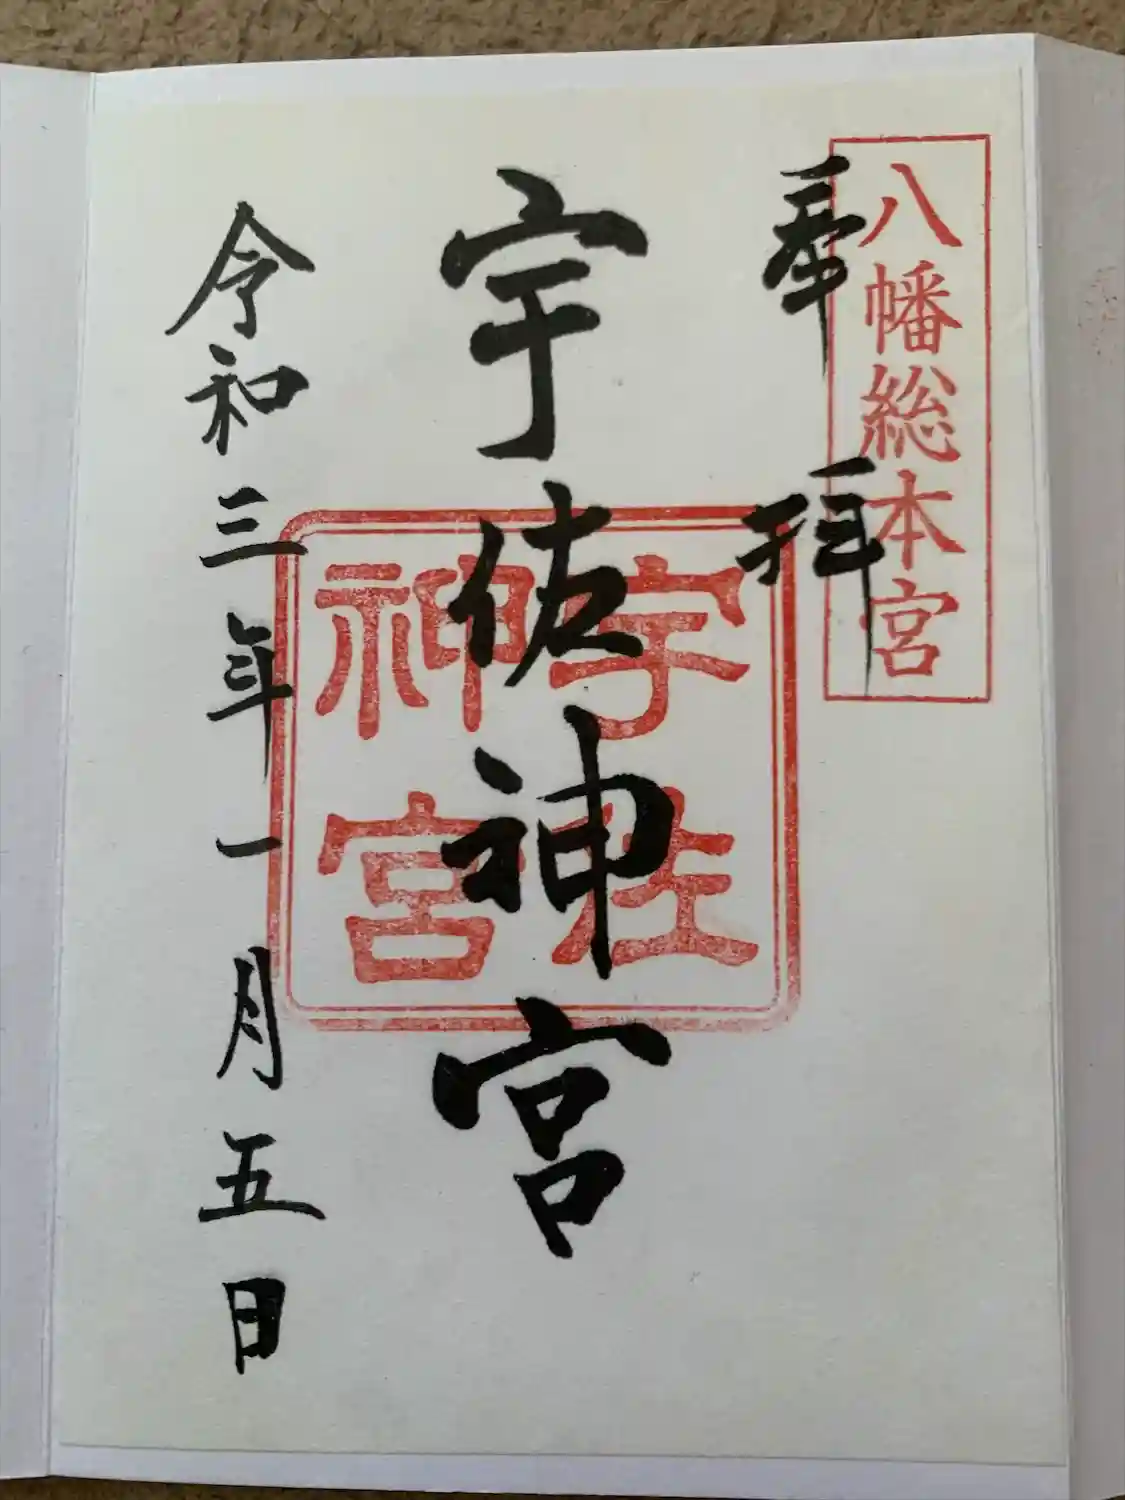 八幡総本宮
奉拝
宇佐神宮
宇佐
神宮
令和三年一月五日